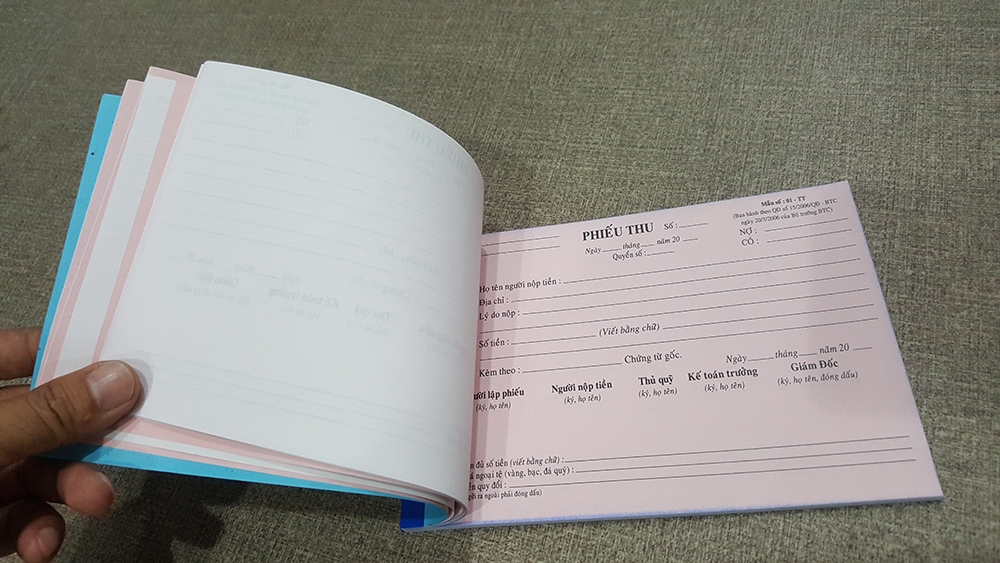 Mẫu số : 01 - TT
(Ban hành theo QĐ số 15/2006/QĐ - BTC
ngày 20/3/2006 của Bộ trưởng BTC)
PHIẾU THU Số :
Ngày tháng năm 20
Quyển số :
NỢ :
CÓ :
Họ tên người nộp tiền :
Địa chỉ :
Lý do nộp :
Số tiền : (Viết bằng chữ)
Kèm theo : Chứng từ gốc.
Ngày tháng năm 20
lập phiếu Người nộp tiền Thủ quỹ Kế toán trưởng Giám Đốc
(ký, họ tên) (ký, họ tên) (ký, họ tên) (ký, họ tên) (ký, họ tên, đóng dấu)
đủ số tiền (viết bằng chữ) :
ngoại tệ (vàng, bạc, đá quý) :
quy đổi :
ra ngoài phải đóng dấu)